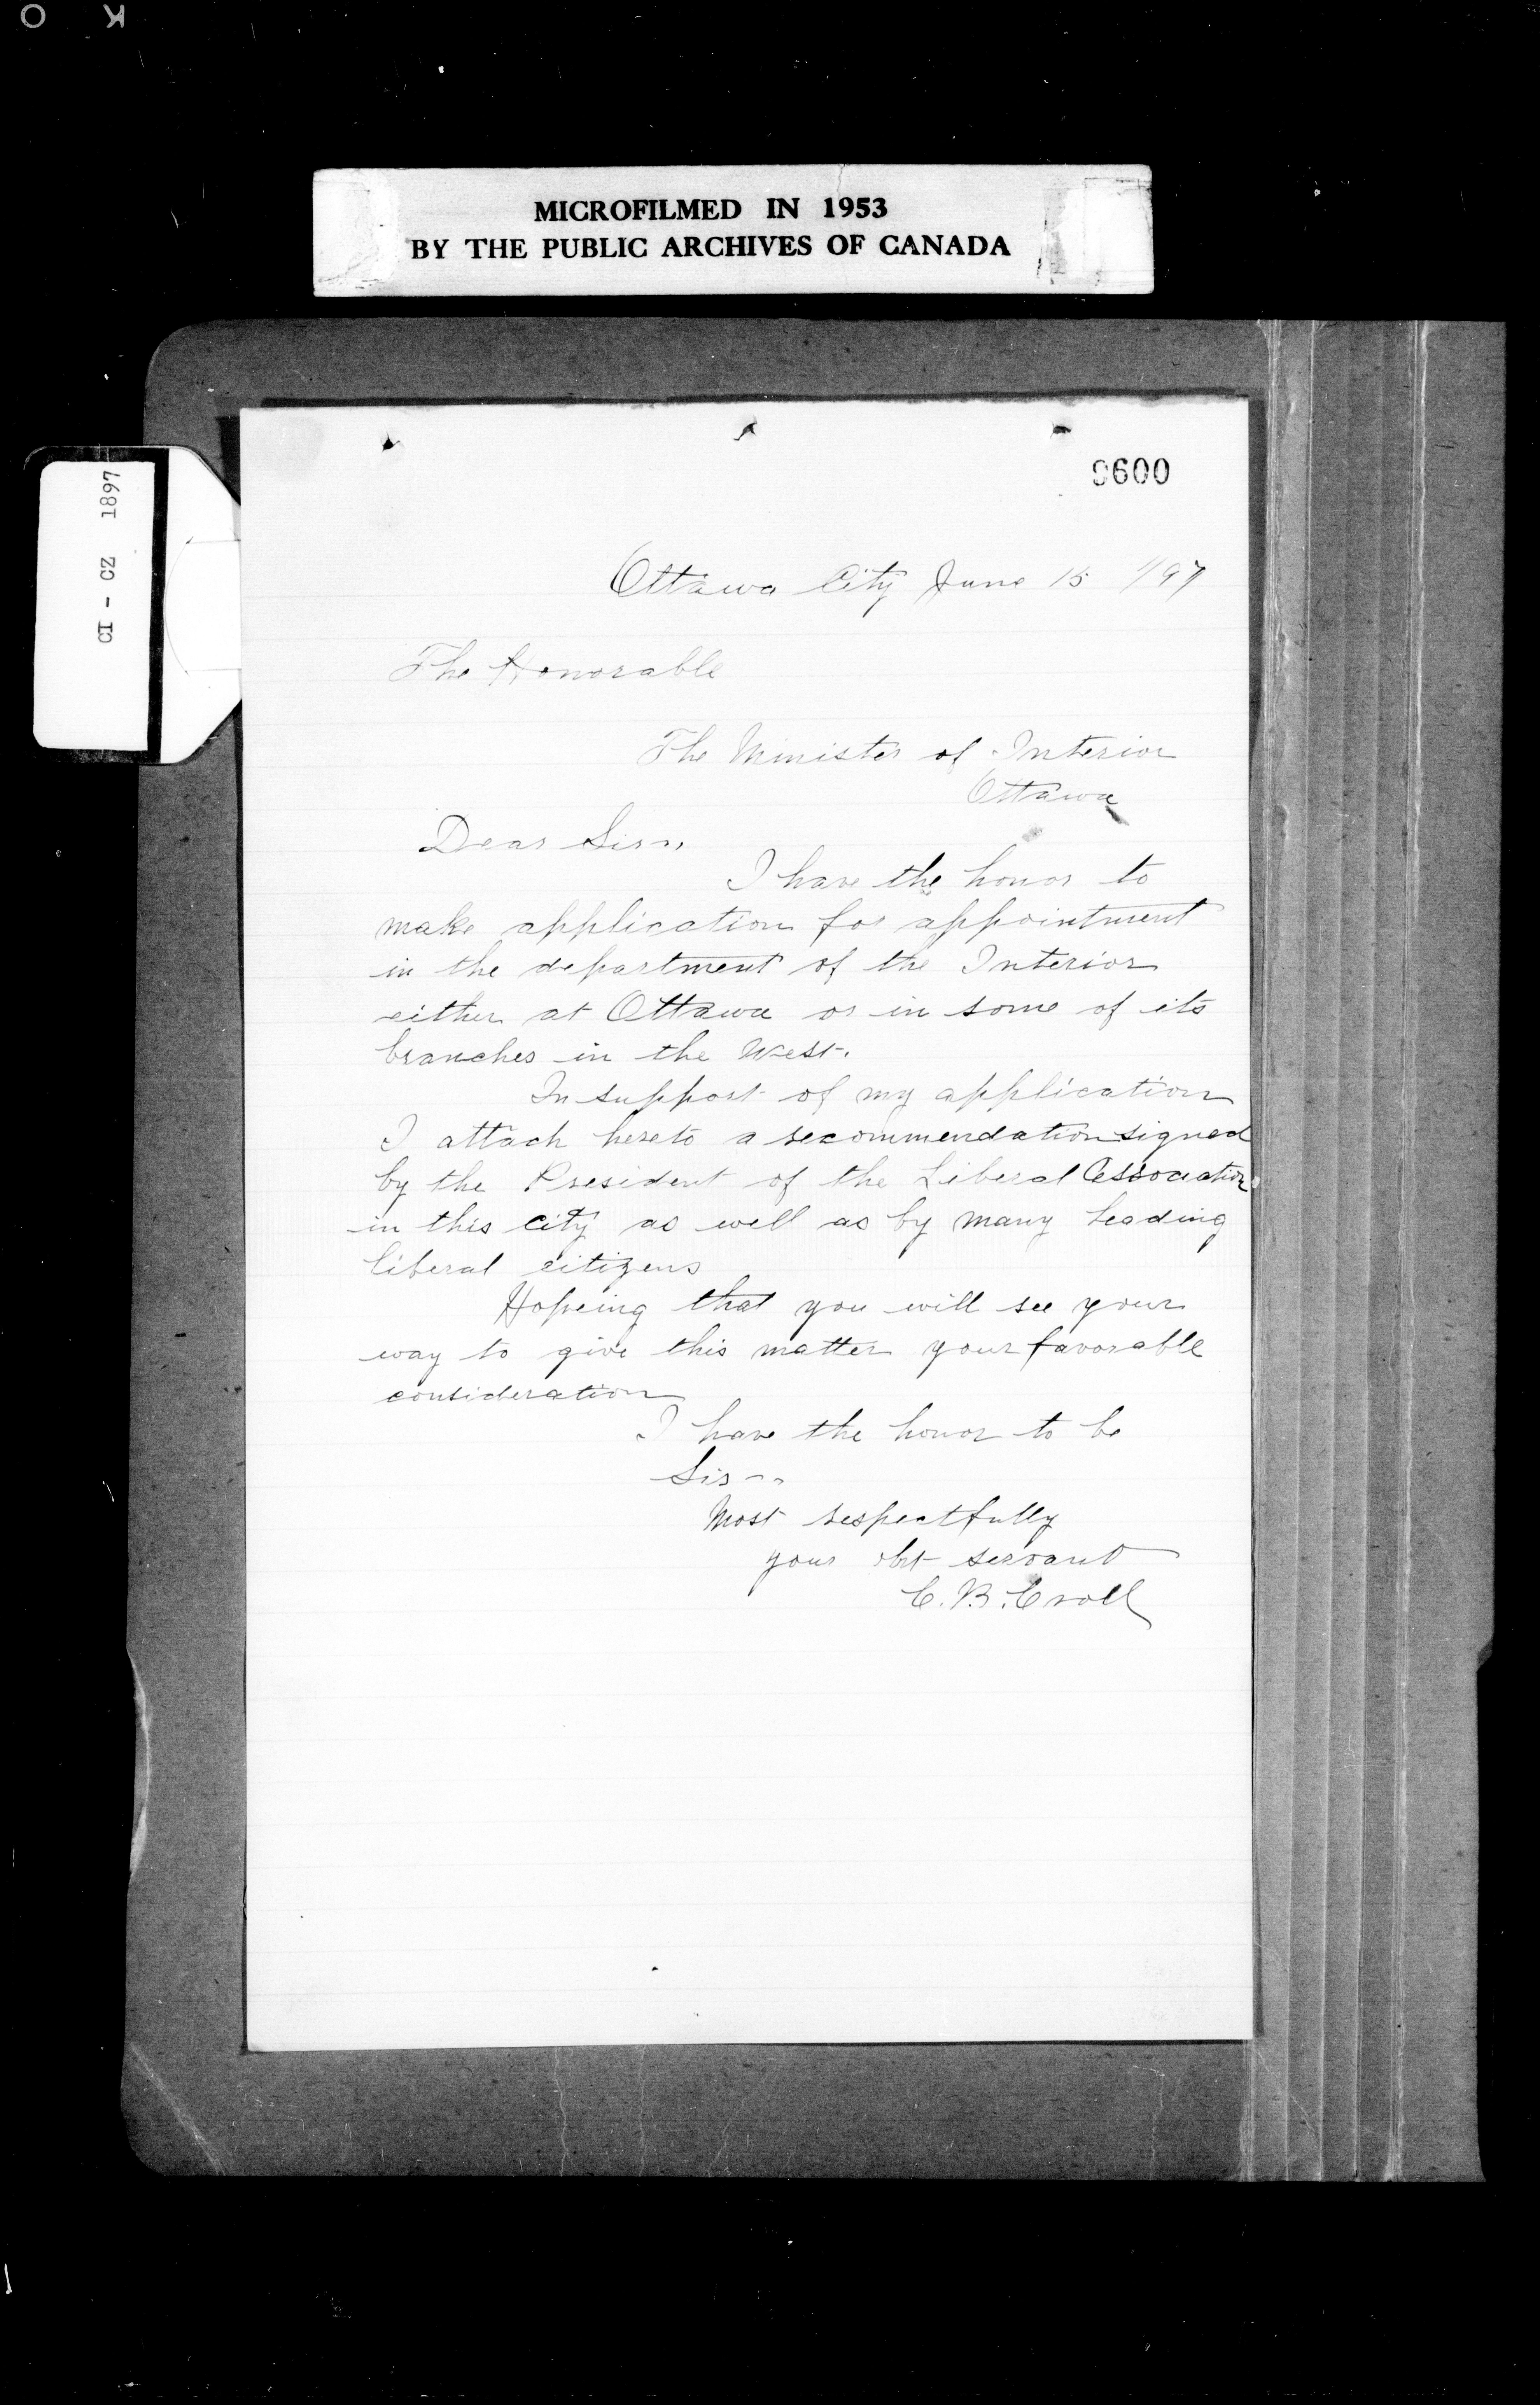 O K
MICROFILMED IN 1953
BY THE PUBLIC ARCHIVES OF CANADA
CI - CZ 1897
9600
Ottawa City June 15 1/97
The Honorable
The Minister of Interior
Ottawa
Dear Sir,,
I have the honor to
make application for appointment
in the department of the Interior
either at Ottawa or in some of its
branches in the West.
In support of my application
I attach hereto a recommendation signed
by the President of the Liberal Association
in this city as well as by many leading
liberal citizens
Hopeing that you will see your
way to give this matter your favorable
consideration
I have the honor to be
Sir --
Most respectfully
your obt servant
C. B. Croll